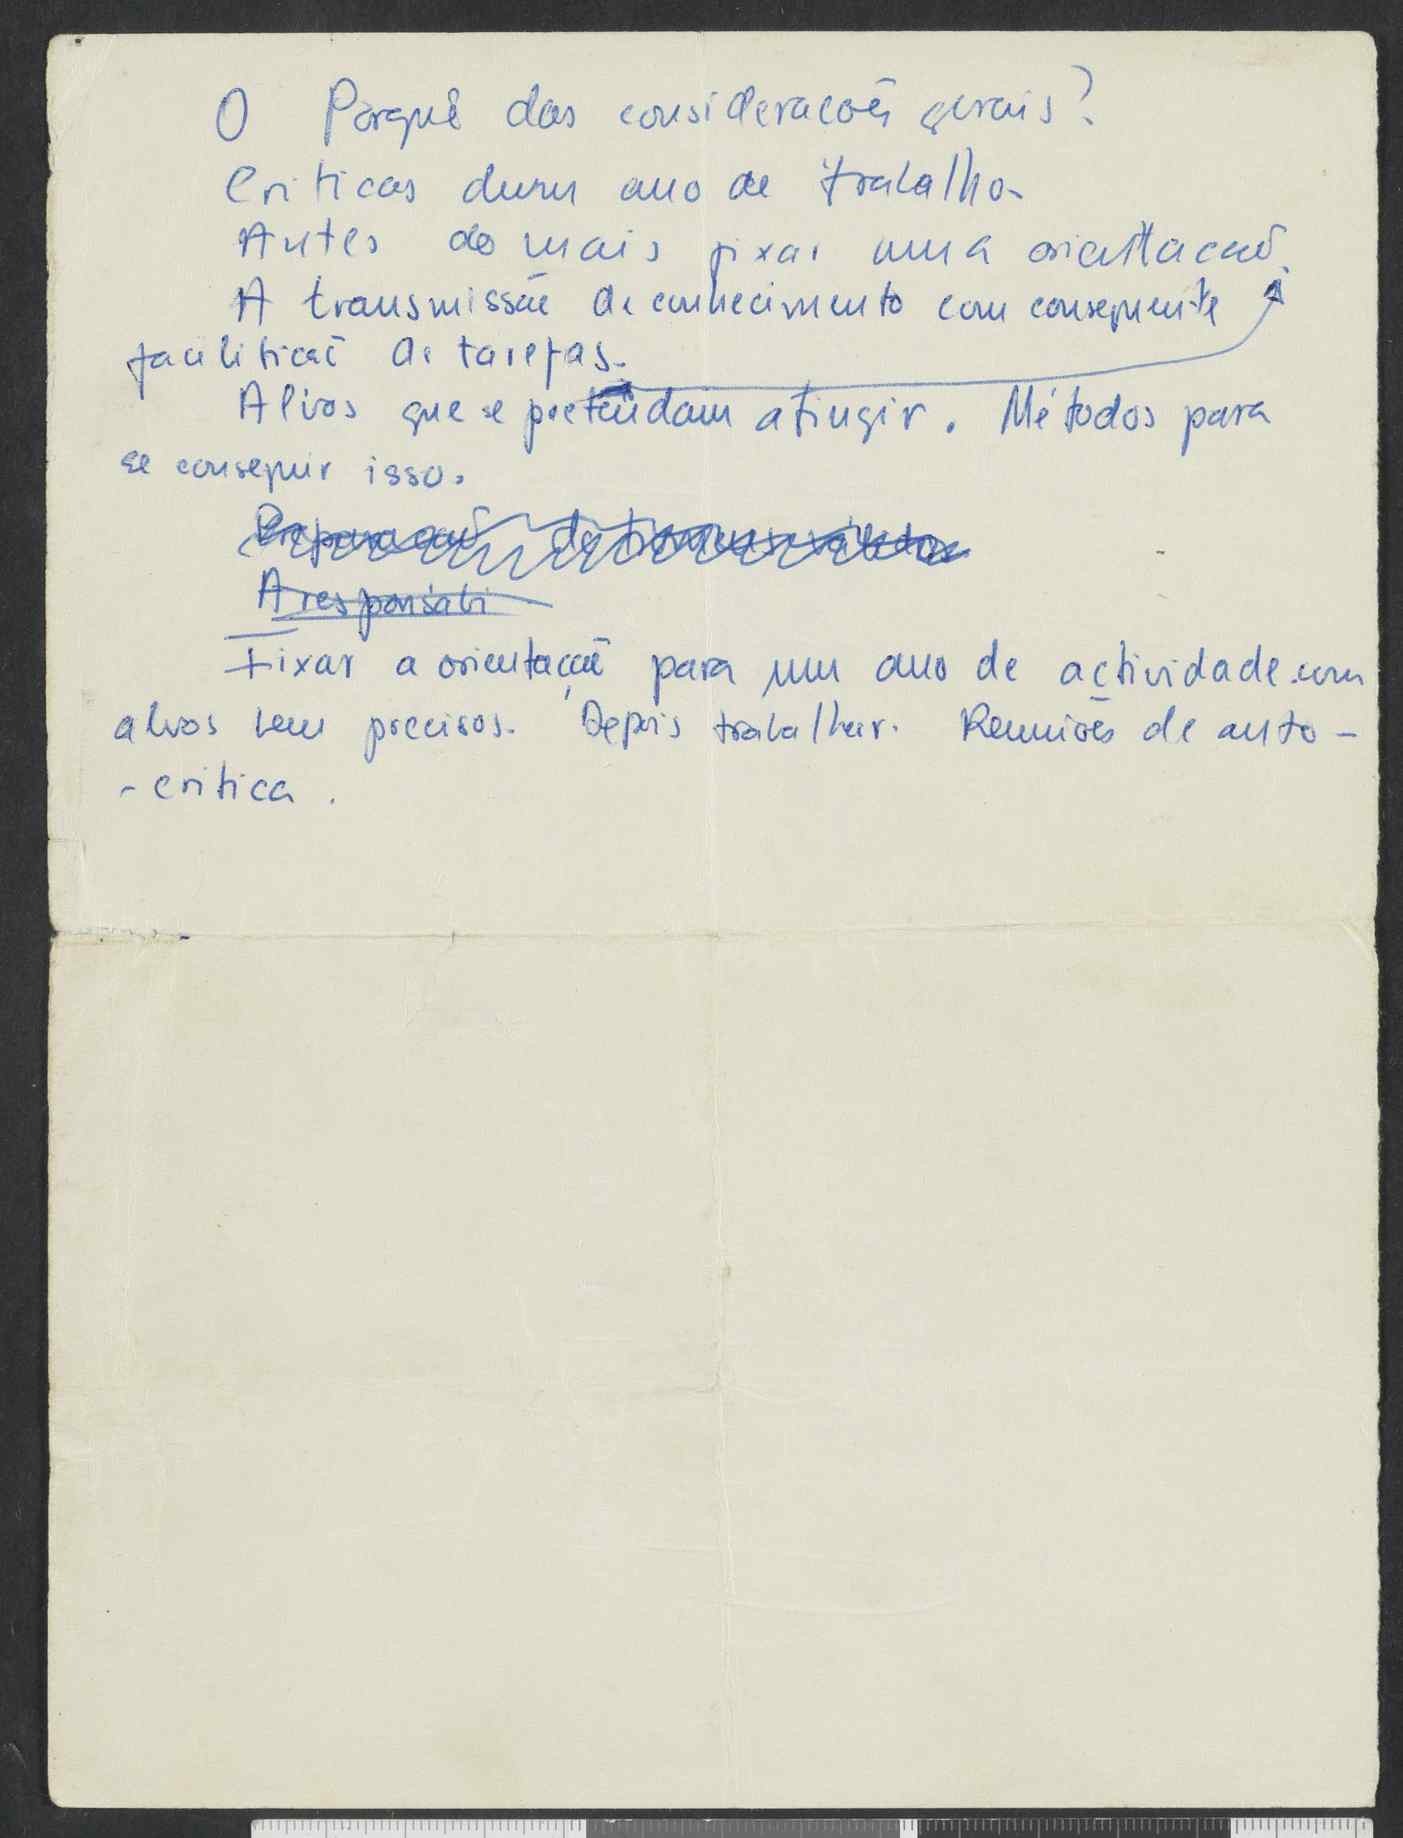 O Porquê das considerações gerais?
Criticas dum ano de trabalho.
Antes do mais fixar uma orientação.
A transmissão de conhecimento com consequente
faciliticaō de tarefas.
Alvos que se pretendam atingir. Métodos para
se conseguir isso.
Preparação de
A responsabi
Fixar a orientação para um ano de actividade com
alvos bem precisos. Depois trabalhar. Reuniões de auto-
-critica.